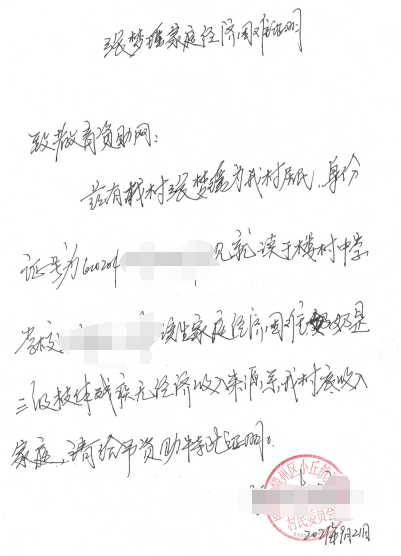 张梦瑶家庭经济困难证明
致教育资助网:
兹有我村张梦瑶为我村居民,身份
证号为610204 见就读于 村中学
学校 该生家庭经济困难 妈妈是
三级肢体残疾无经济收入来源系我村底收入
家庭,请给予资助特此证明。
州区小丘
村民委员会
2021年9月21日